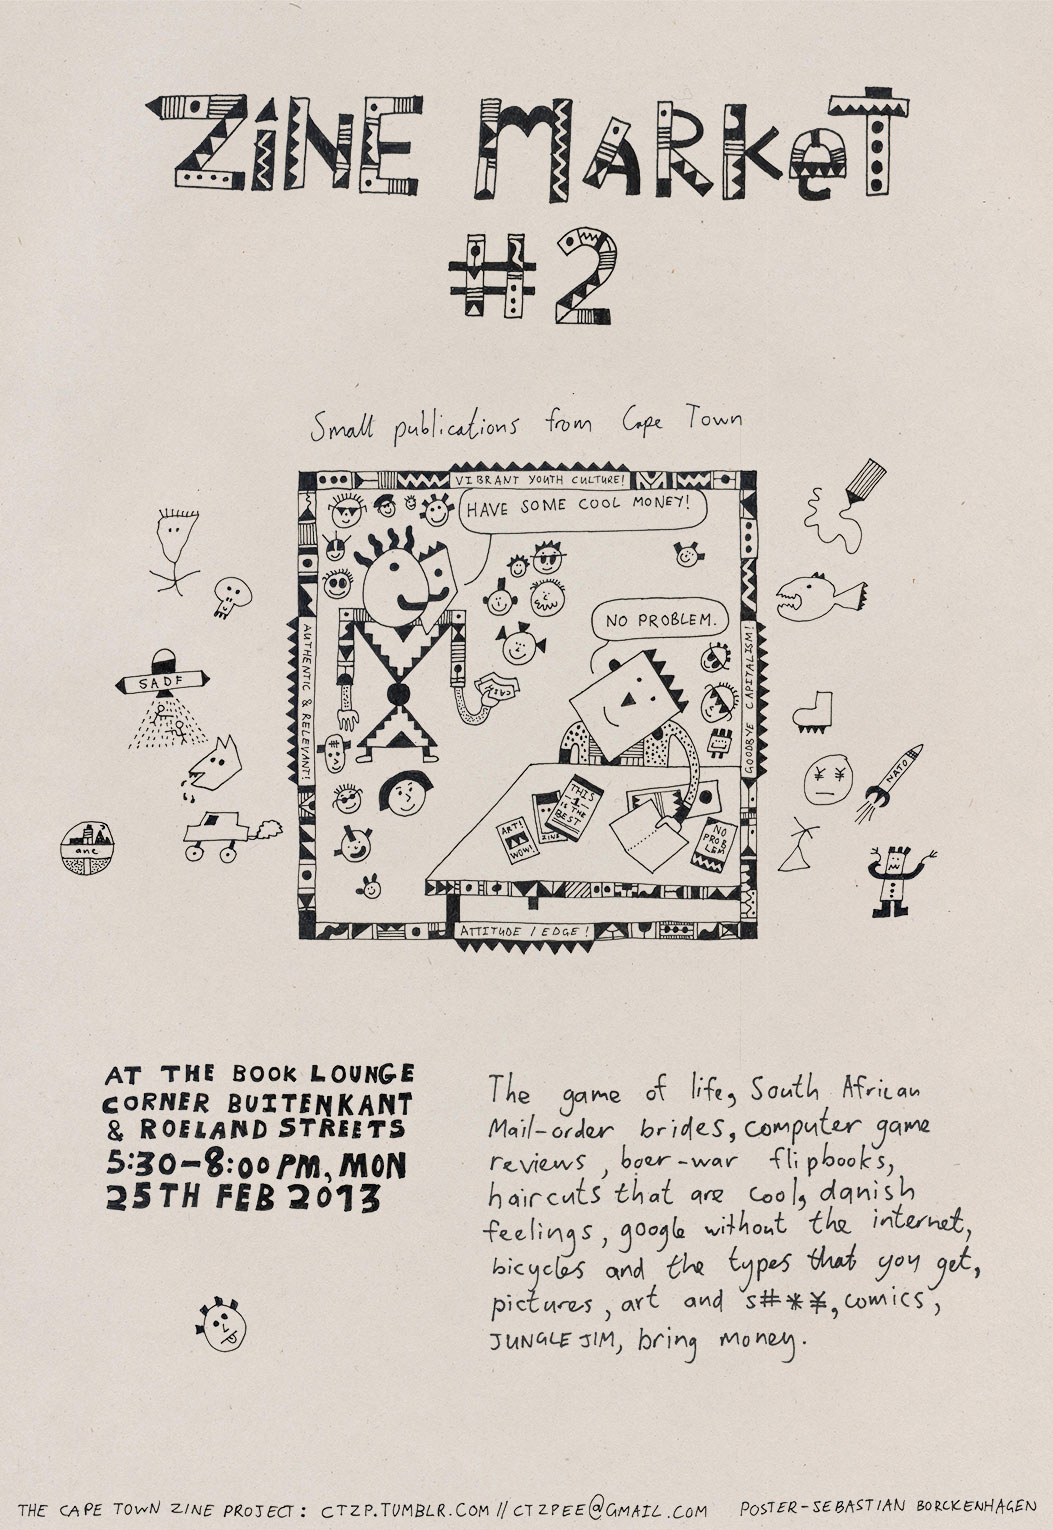 ZiNE MARKeT
#2
Small publications from Cape Town
VIBRANT YOUTH CULTURE!
HAVE SOME COOL MONEY!
NO PROBLEM.
AUTHENTIC & RELEVANT!
GOODBYE CAPITALISM!
SADF
CASH
NATO
anc
ART!
WOW!
ZINE
THIS
-1-
IS THE
BEST
NO
PROB
LEM
ATTITUDE / EDGE!
AT THE BOOK LOUNGE
CORNER BUITENKANT
& ROELAND STREETS
5:30-8:00 PM, MON
25TH FEB 2013
The game of life, South African
Mail-order brides, computer game
reviews, boer-war flipbooks,
haircuts that are cool, danish
feelings, google without the internet,
bicycles and the types that you get,
pictures, art and s#*¥, comics,
JUNGLE JIM, bring money.
THE CAPE TOWN ZINE PROJECT: CTZP.TUMBLR.COM // CTZPEE@GMAIL.COM POSTER-SEBASTIAN BORCKENHAGEN